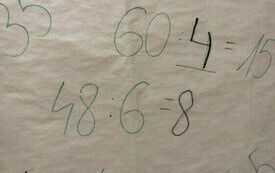 60:4=15
48:6=8